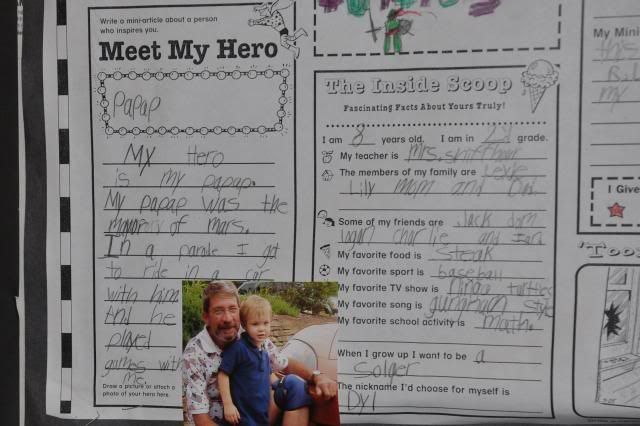 Write a mini-article about a person
who inspires you.
Meet My Hero
Papap
My Hero
is my papap.
My papap was the
of mars.
In a parade I got
to ride in a car
with him
And he
played
games with
me.
Draw a picture or attach a
photo of your hero here.
The Inside Scoop
Fascinating Facts About Yours Truly!
I am 8 years old. I am in 2d grade.
My teacher is Mrs.
The members of my family are
Lily mom and
Some of my friends are Jack
logan charlie and
My favorite food is Steak
My favorite sport is baseball
My favorite TV show is ninja turtles
My favorite song is gungnam style
My favorite school activity is math.
When I grow up I want to be a
Solger
The nickname I'd choose for myself is
Dyl
My Mini-
this
my
I Give
'Too